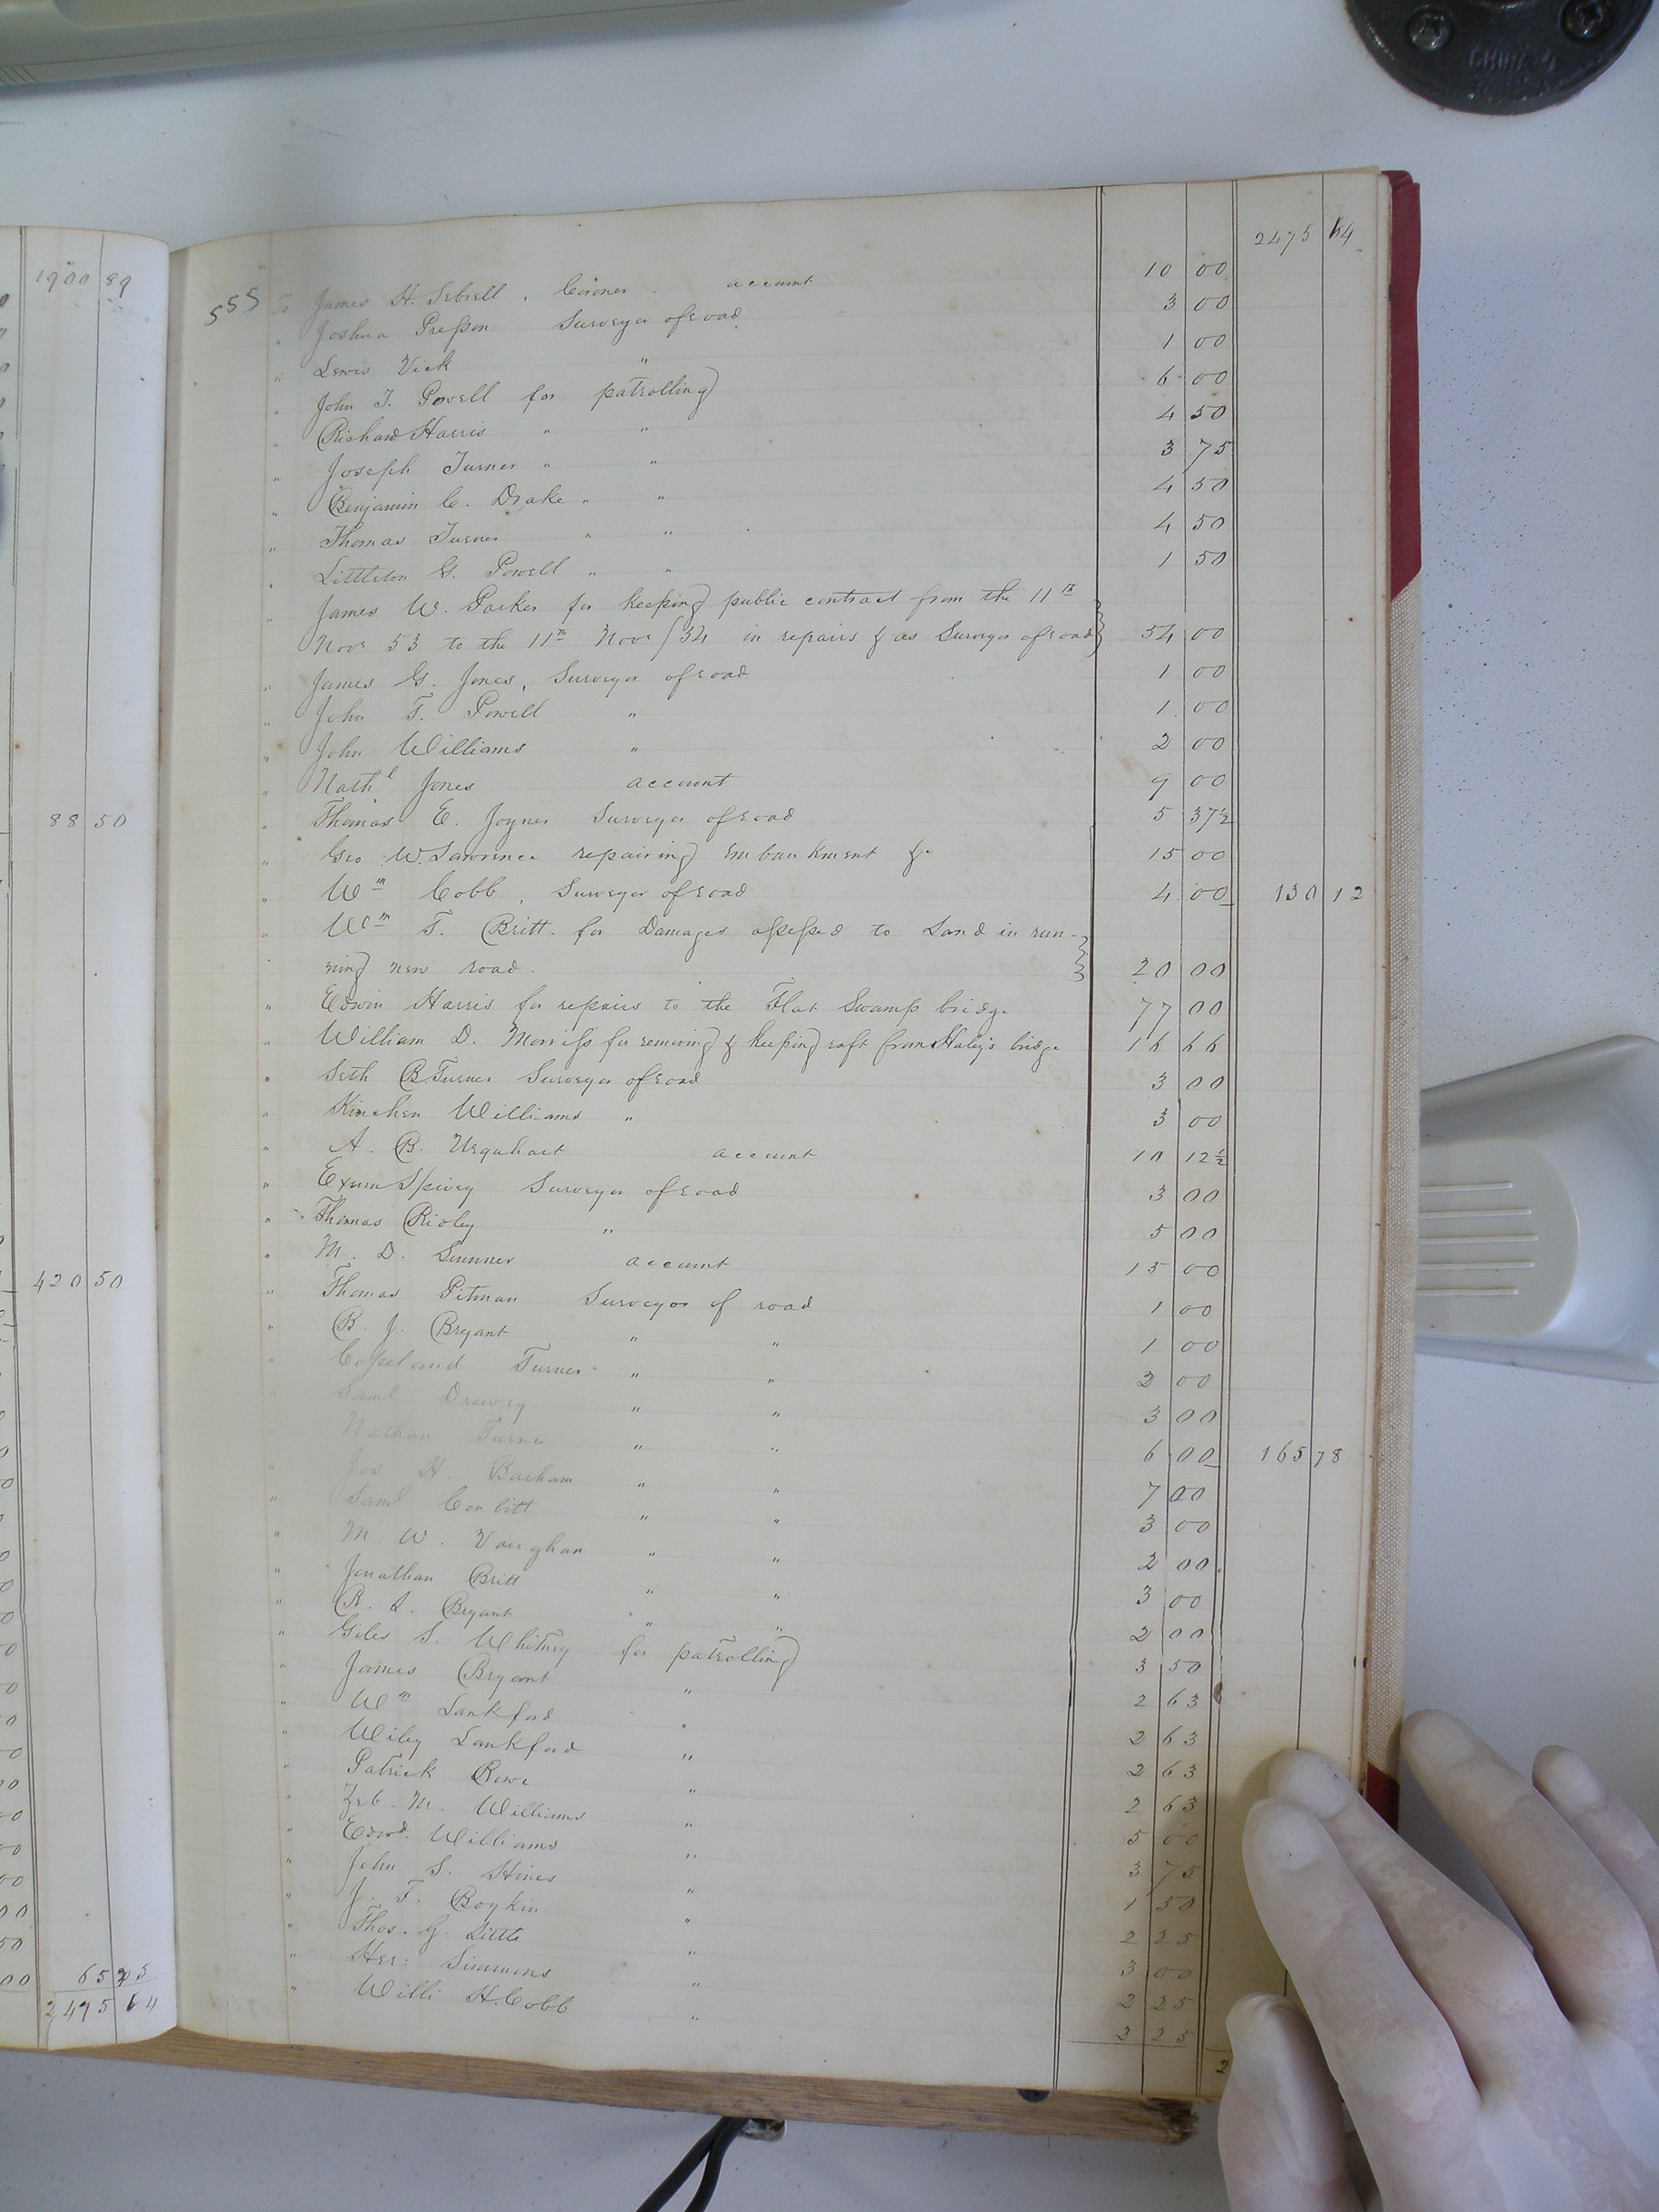 1900 89
88 50
420 50
65 25
2475 64
2475 64
555 To James H. Sebrell, Coroner account 10 00
" Joshua Presson Surveyor of road 3 00
" Lewis Vick " 1 00
" John T. Powell for patrolling 6 00
" Richard Harris " " 4 50
" Joseph Turner " " 3 75
" Benjamin C. Drake " " 4 50
" Thomas Turner " " 4 50
" Littleton G. Powell " " 1 50
" James W. Parker for keeping public contract from the 11th
Novr 53 to the 11th Novr /54 in repairs & as Surveyor of road 54 00
" James G. Jones, Surveyor of road 1 00
" John T. Powell " 1 00
" John Williams " 2 00
" Nathl Jones account 9 00
" Thomas E. Joyner Surveyor of road 5 37½
" Geo W. Lawrence repairing embankment &c 15 00
" Wm Cobb, Surveyor of road 4 00 130 12
" Wm T. Britt for Damages assessed to Land in run-
ning new road. 20 00
" Edwin Harris for repairs to the Flat Swamp bridge 77 00
" William D. Morriss for removing & keeping raft from Haley's bridge 16 66
" Seth B Turner Surveyor of road 3 00
" Kinchen Williams " 3 00
" A. B. Urquhart account 10 12½
" Exum Spivey Surveyor of road 3 00
" Thomas Ridley " 5 00
" M. D. Sumner account 15 00
" Thomas Pitman Surveyor of road 1 00
" B. J. Bryant " " 1 00
" Copeland Turner " " 2 00
" Saml Drewry " " 3 00
" Nathan Turner " " 6 00 165 78
" Jos H. Barham " " 7 00
" Saml Corbitt " " 3 00
" M. W. Vaughan " " 2 00
" Jonathan Britt " " 3 00
" R. S. Bryant " " 2 00
" Giles S. Whitney for patrolling 3 50
" James Bryant " 2 63
" Wm Lankford " 2 63
" Wiley Lankford " 2 63
" Patrick Rowe " 2 63
" Zeb. M. Williams " 5 00
" Edwd. Williams " 3 75
" John S. Hines " 1 50
" J. T. Boykin " 2 25
" Thos. G. Little " 3 00
" Her: Simmons " 2 25
" Willi H. Cobb " 2 25
2